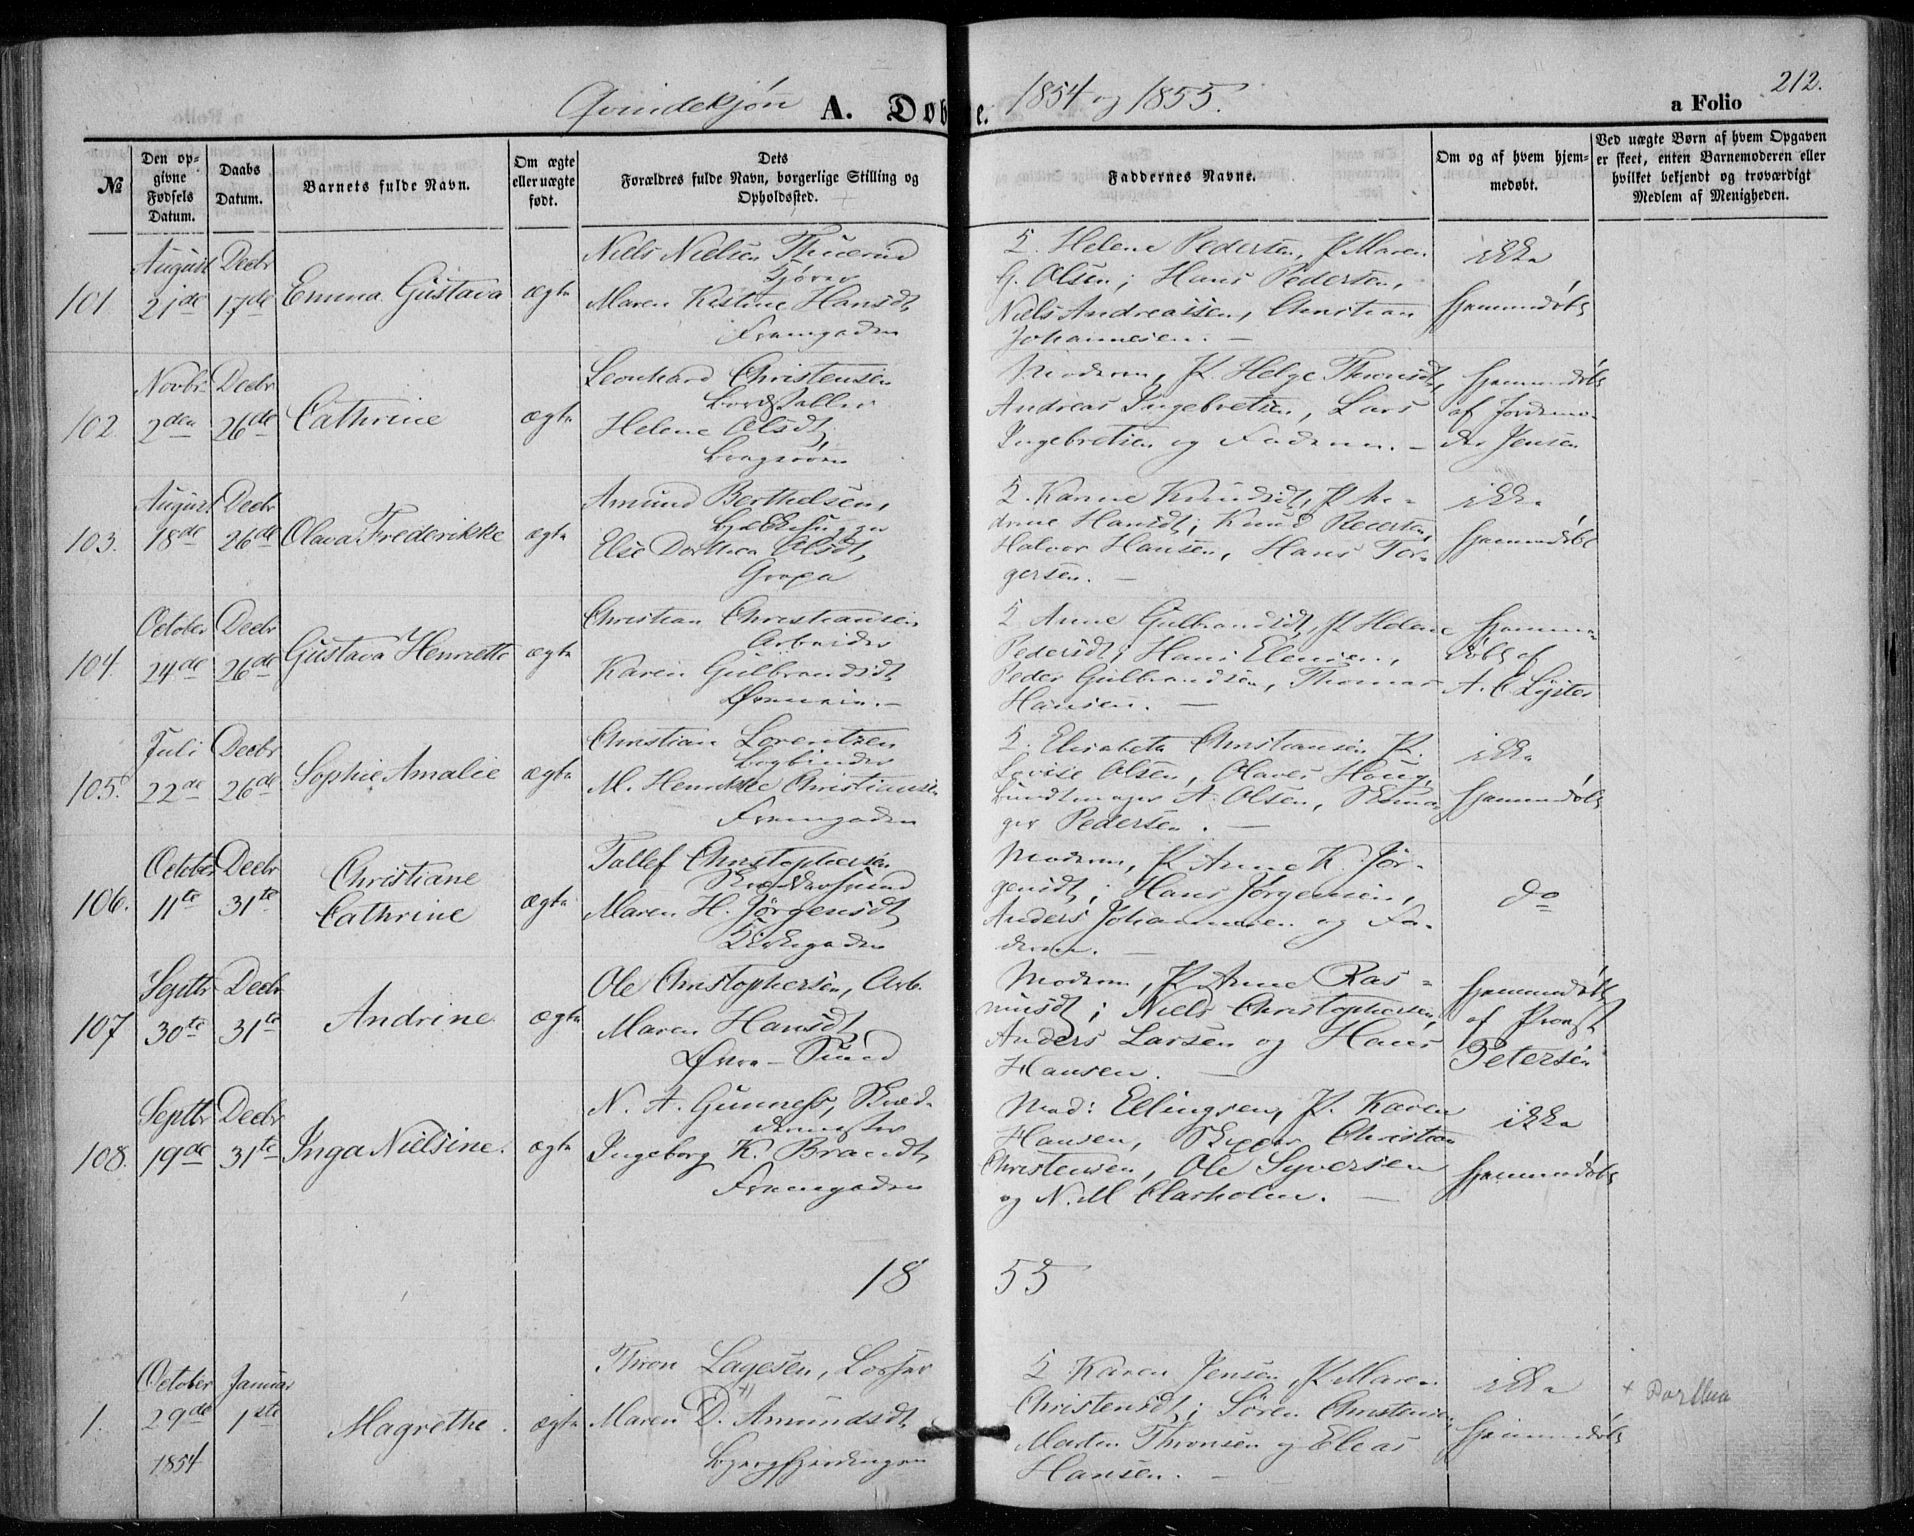 Qvindekjøn A. Døbte. 1854 og 1855. a Folio 212.
No
Den opgivne Fødsels Datum.
Daabs Datum.
Barnets fulde Navn.
Om ægte eller uægte født.
Dets Forældres fulde Navn, borgerlige Stilling og Opholdssted.
Faddernes Navne.
Om og af hvem hjemmedøbt.
Ved uægte Børn af hvem Opgaven er skeet, enten Barnemoderen eller hvilket bekjendt og troværdigt Medlem af Menigheden.
101.
August 21de
Decbr 17de
Emma Gustava
ægte
Niels Nielsen
Maren Kistine Hansdt,
Helene Pedersen, P. Maren
G. Olsen; Hans Pedersen,
Niels Andreassen, Christian
Johannesen. —
ikke
hjemmedøbt
102.
Novbr 2den
Decbr 26de
Cathrine
ægte
Leonhard Christensen
Helene Olsdt,
Moderen, P. Helge Thronsdt,
Andreas Ingebretsen, Lars
Ingebretsen og Faderen. —
hjemmedøbt
af Jordemo-
der Jensen
103.
August 18de
Decbr 26de
Olava Frederikke
ægte
Amund Berthelsen,
Else Dorthea Olsdt,
Karine Knudsdt, P. An-
drine Hansdt; Knud Pedersen,
Halvor Hansen, Hans Tor-
gersen. —
ikke
hjemmedøbt
104.
October 24de
Decbr 26de
Gustava Henriette
ægte
Christian Christiansen
Arbeider
Karen Gulbrandsdt
Anne Gulbrandsdt, P. Helene
Pedersdt; Hans Elensen,
Peder Gulbrandsen, Thomas
Hansen. —
hjemme-
døbt af
A. C. Lyster
105.
Juli 22de
Decbr 26de
Sophie Amalie
ægte
Christian Lorentzen
Bogbinder
M. Henrikke Christiansen
Strømgaden
Elisabeth Christiansen P.
Lovise Olsen, Olaves Houg,
Bundtmager A. Olsen, Skoma-
ger Pedersen. —
ikke
hjemmedøbt
106.
October 11te
Decbr 31te
Christiane
Cathrine
ægte
Tollef Christophersen
Maren H. Jørgensdt
Kirkegaden
Moderen, P. Anne K. Jør-
gensdt; Hans Jørgensen,
Anders Johannesen og Fa-
deren. —
do
107
Septbr 30te
Decbr 31te
Andrine
ægte
Ole Christophersen, Arb.
Maren Hansdt
Øvre-Sund
Moderen, P. Anne Ras-
musdt; Niels Christophersen,
Anders Larsen og Hans
Hansen. —
hjemmedøbt
af Provst
Petersen
108.
Septbr 19de
Decbr 31te
Inga Nielsine.
ægte
N. A. Gunness, Skræd-
dermester
Ingeborg K. Brandt,
Strømgaden
Mad: Ellingsen, P. Karen
Hansen, Skipper Christian
Christensen, Ole Syversen
og N. M. Clarholm. —
ikke
hjemmedøbt
1855
1.
October 29de 1854
Januar 1ste
Magrethe.
ægte
Thron Lagesen, Losser
Maren D. +) Amundsdt,
Bjergfjerdingen
Karen Jensen, P. Maren
Christensdt; Søren Christensen,
Morten Thronsen og Elias
Hansen. —
ikke
hjemmedøbt
+ Dorthea